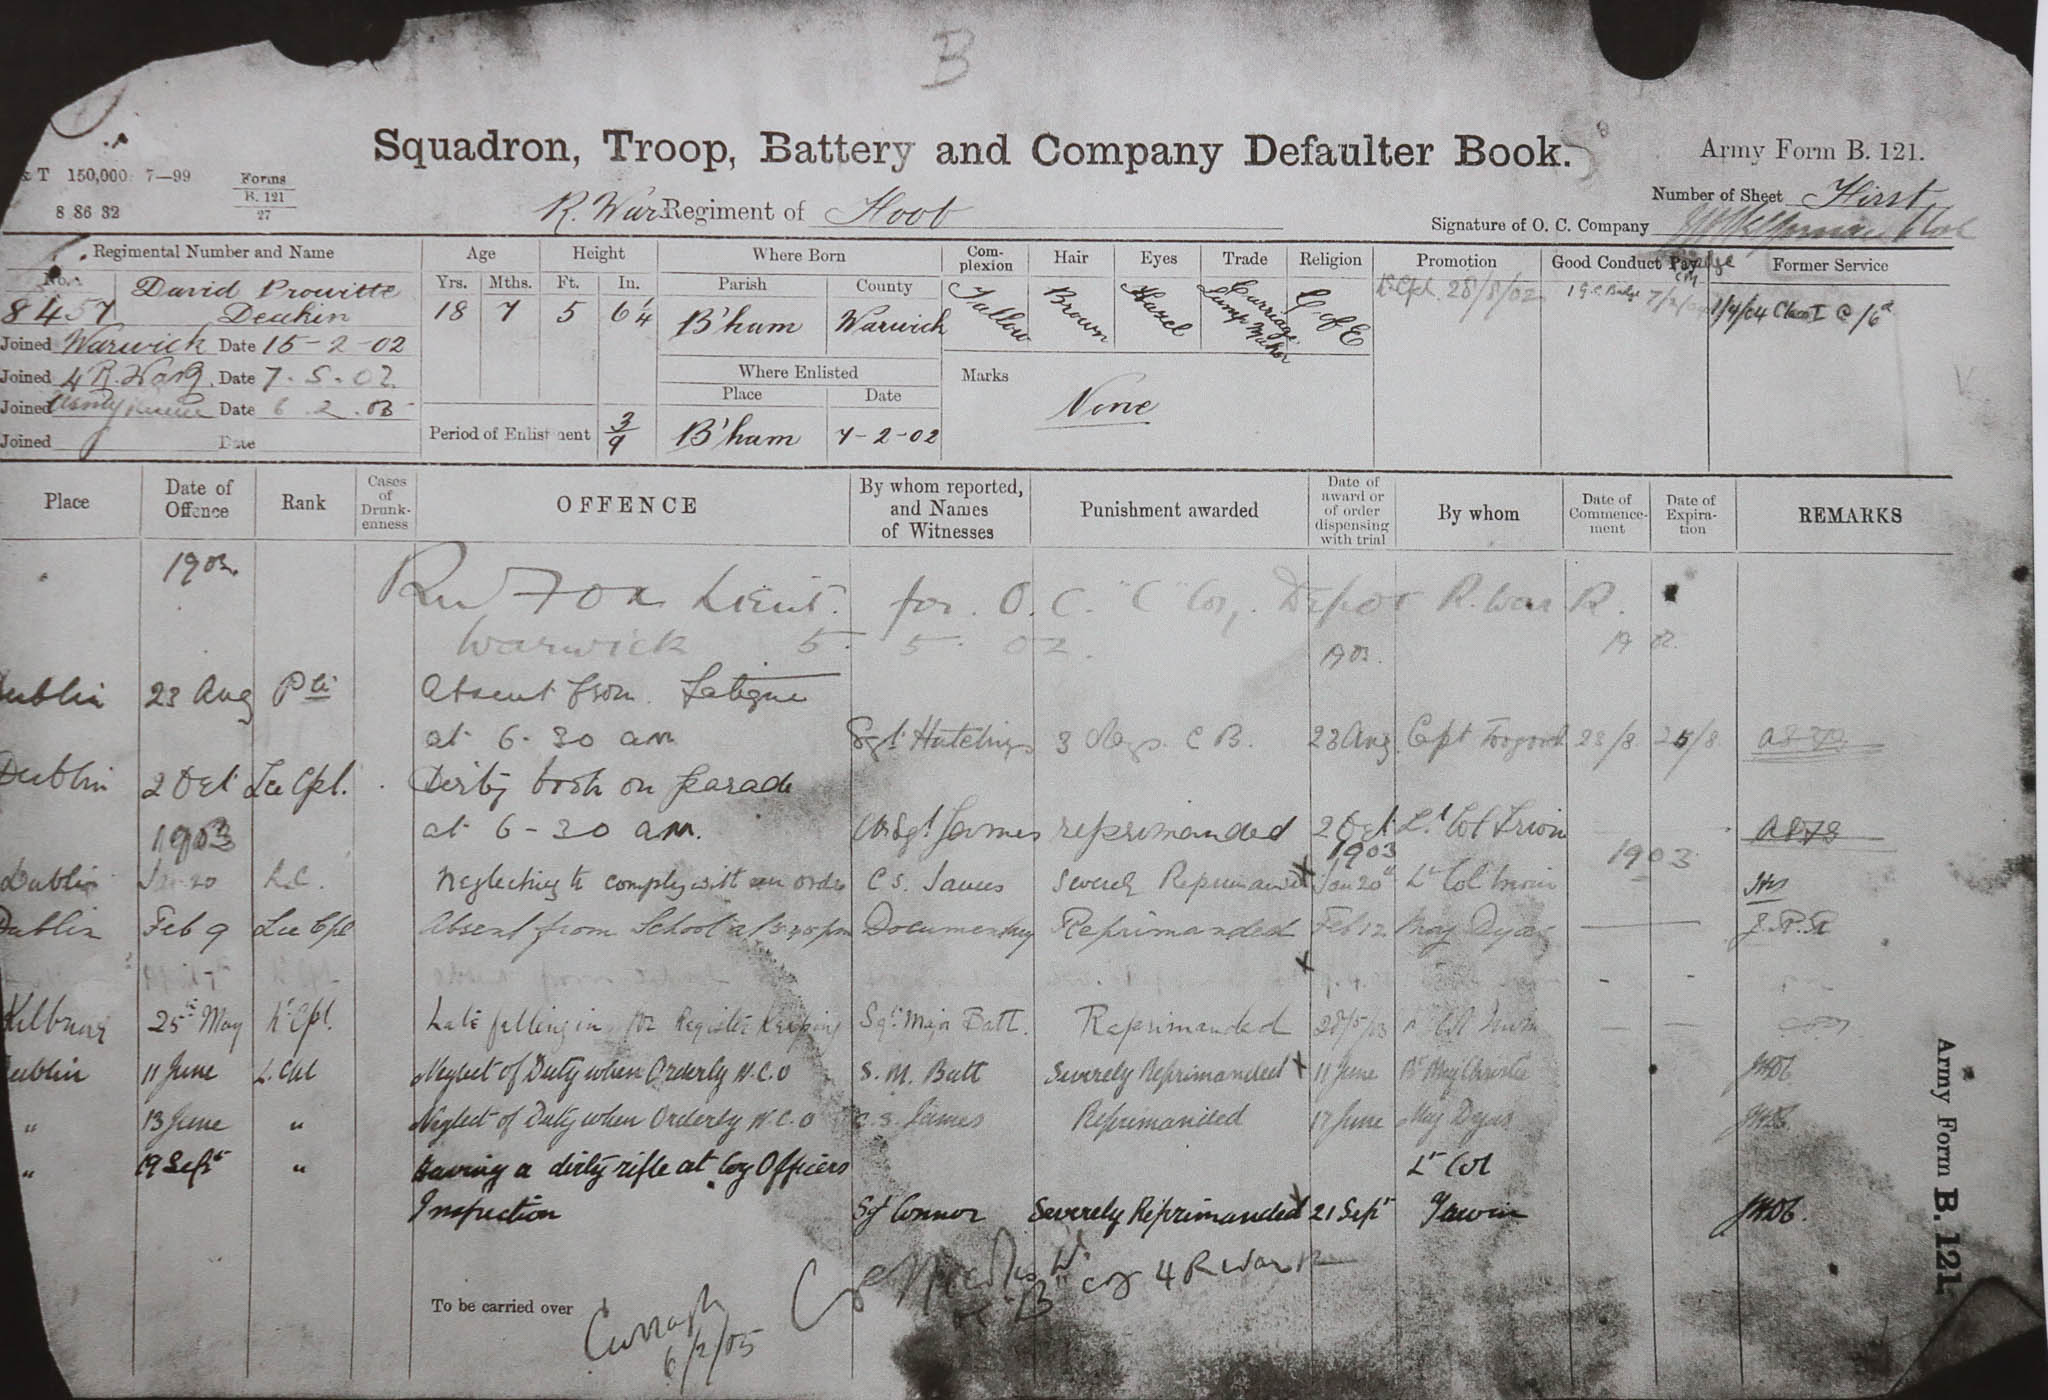 B
Squadron, Troop, Battery and Company Defaulter Book.
Army Form B. 121.
& T 150,000 7—99
8 86 32
Forms
B. 121
27
Number of Sheet First
R. War Regiment of Foot
Signature of O. C. Company
Regimental Number and Name
Age
Height
Where Born
Com-
plexion
Hair
Eyes
Trade
Religion
Promotion
Good Conduct Pay
Former Service
No.
Yrs. Mths. Ft. In.
Parish
County
8457
David Prowitte
Deakin
18 7 5 6¼
B'ham
Warwick
Brown
Hazel
Carriage
Lamp Maker
C. of E
28/8/02
1 G.C. Badge
1/4/04 Class I @ /6d
Joined Warwick Date 15-2-02
Joined 4 R. War R. Date 7.5.02
Joined Army Reserve Date 6.2.05
Joined
Date
Where Enlisted
Place
Date
B'ham
7-2-02
Period of Enlistment 3/9
Marks
None
Place
Date of
Offence
Rank
Cases
of
Drunk-
enness
OFFENCE
By whom reported,
and Names
of Witnesses
Punishment awarded
Date of
award or
of order
dispensing
with trial
By whom
Date of
Commence-
ment
Date of
Expira-
tion
REMARKS
1902
Fox Lieut. for. O. C. "C" Coy, Depot R. War R.
Warwick 5. 5. 02.
1902.
1902.
Dublin 23 Aug Pte Absent from Fatigue
at 6-30 am Sgt Hutchings 3 days C B. 23 Aug Capt 23/8 25/8
Dublin 2 Oct Lce Cpl. Dirty boots on parade
at 6-30 am. Col Sgt James reprimanded 2 Oct Lt Col Irwin
1903
1903
1903
Dublin Jan 20 L.C. Neglecting to comply with an order C S. James Severely Reprimanded Jan 20 Lt Col Irwin
Dublin Feb 9 Lce Cpl Absent from School Documentary Reprimanded Feb 12 Maj Dyas J.R.R
25th May Lce Cpl. Late falling in for Register Keeping Sgt Major Batt. Reprimanded 28/5/03 Lt Col Irwin
Dublin 11 June L. Cpl Neglect of Duty when Orderly N.C.O S. M. Batt Severely Reprimanded 11 June Bt Maj Christie
" 13 June " Neglect of Duty when Orderly N.C.O C.S. James Reprimanded 17 June Maj Dyas
" 19 Sept " Having a dirty rifle at Coy Officers
Inspection Sgt Connor Severely Reprimanded 21 Sept Lt Col
Irwin
"B" Coy 4 R War R
To be carried over
Curragh
6/2/05
Army Form B. 121